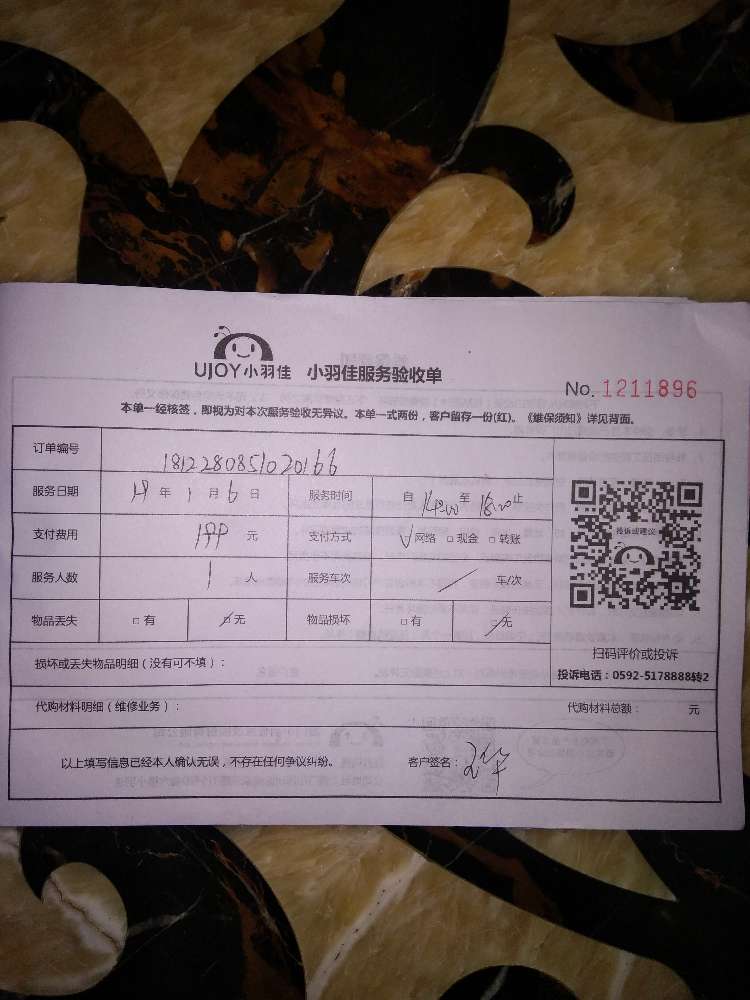 UJOY小羽佳 小羽佳服务验收单
No. 1211896
本单一经核签，即视为对本次服务验收无异议。本单一式两份，客户留存一份(红)。《维保须知》详见背面。
订单编号 1812280851020166
服务日期 19 年 1 月 6 日 服务时间 自 14:00 至 18:00 止
支付费用 199 元 支付方式 √网络 □现金 □转账
投诉或建议
服务人数 1 人 服务车次 / 车/次
物品丢失 □有 ☑无 物品损坏 □有 ☑无
扫码评价或投诉
投诉电话：0592-5178888转2
损坏或丢失物品明细（没有可不填）：
代购材料明细（维修业务）： 代购材料总额： 元
以上填写信息已经本人确认无误，不存在任何争议纠纷。 客户签名：